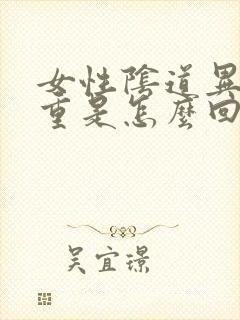 女性陰道異
重是怎麼回
吴宜璟